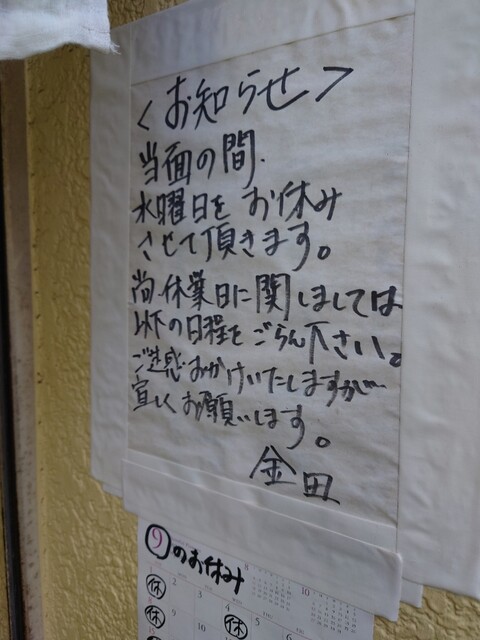 <お知らせ>
当面の間、
水曜日を お休み
させて頂きます。
尚、休業日に関しましては
以下の日程をごらん下さい。
ご迷惑おかけいたしますが
宜しくお願いします。
金田
9のお休み
8
10
1 2 3 4 5 6
休
休 9 10 休